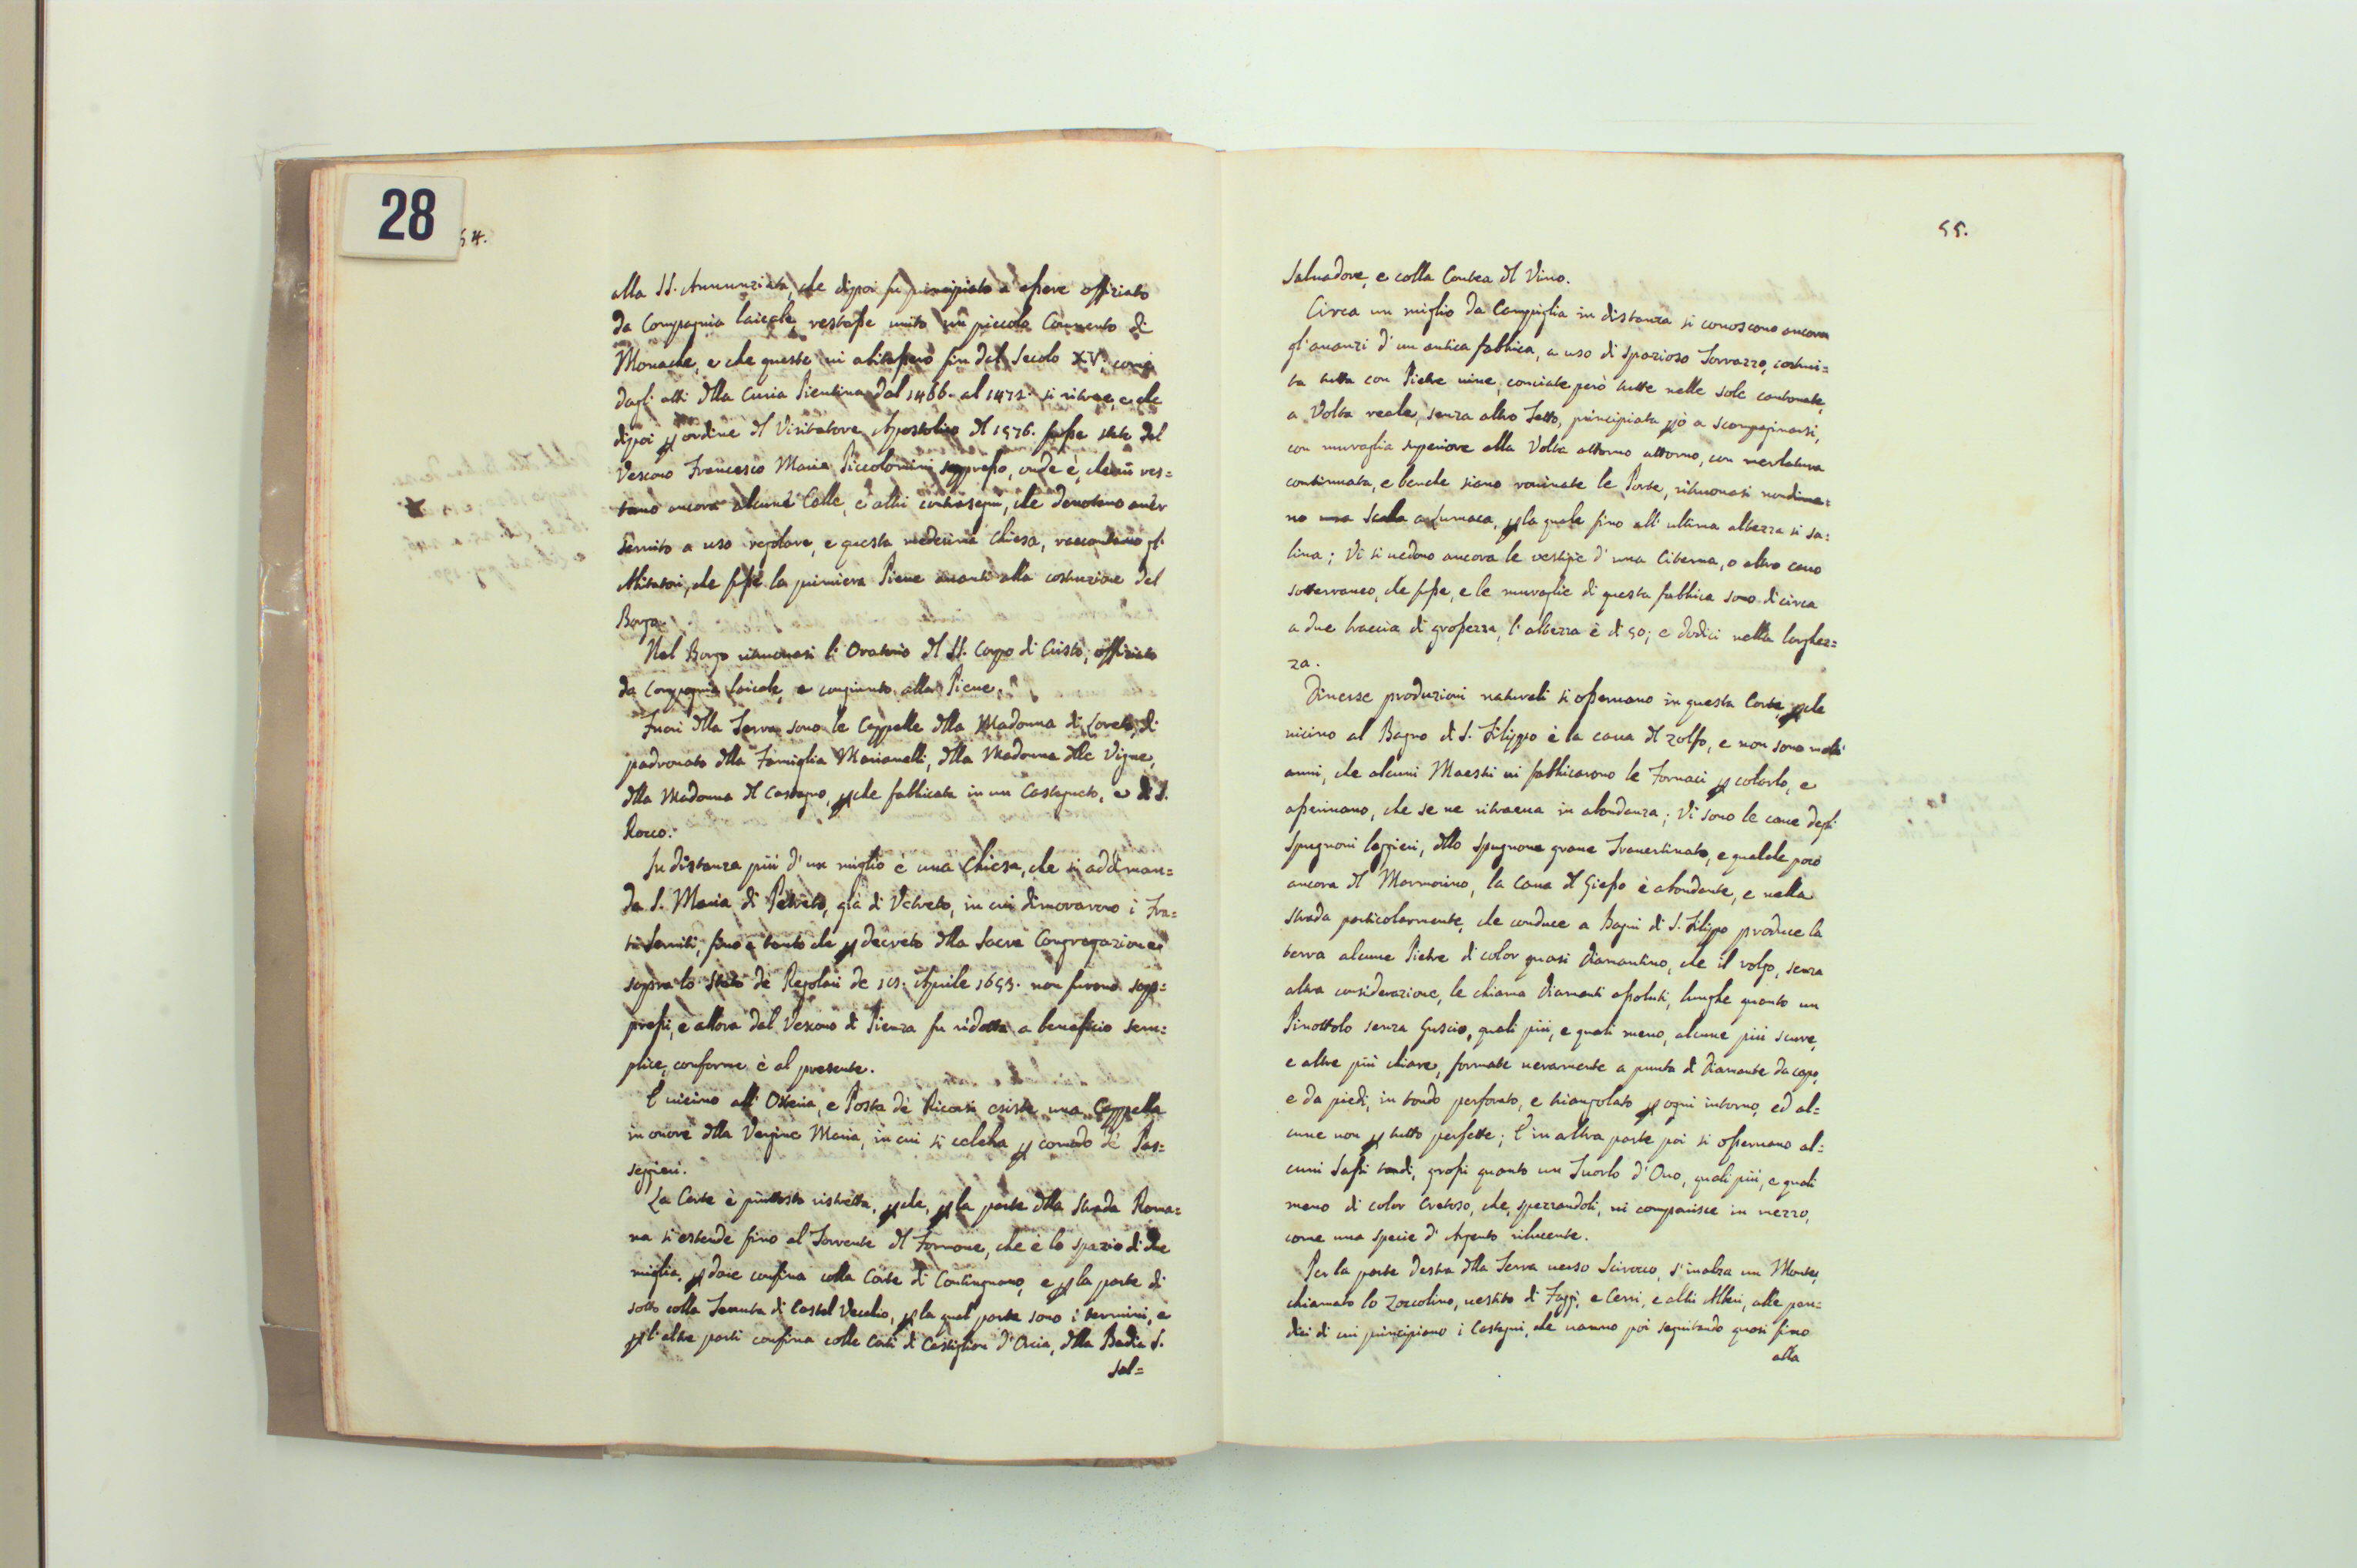 28
54.
alla SS. Annunziata, che dipoi fu principiato a essere offiziato
da Compagnia laicale, restasse unito un piccolo Convento di
Monache, e che queste vi abitassero fin del Secolo XV. come
dagl'atti della Curia Pientina dal 1466. al 1472. si ritrae, e che
dipoi per ordine del Visitatore Apostolico del 1576. fosse stato dal
Vescovo Francesco Maria Piccolomini soppresso, onde è, che vi res=
tano ancora alcune Celle, e altri contrasegni, che denotano aver
servito a uso regolare, e questa medesima Chiesa, raccontano gl'
Abitatori, che fosse la primiera Pieve avanti alla costruzione del
Borgo.
Nel Borgo ritrovasi l'Oratorio del SS. Corpo di Cristo, offiziato
da Compagnia laicale, e congiunto alla Pieve.
Fuori della Terra sono le Cappelle della Madonna di Loreto, di
padronato della Famiglia Marianelli, della Madonna delle Vigne,
della Madonna del Castagno, perche fabbricata in un Castagneto, e di S.
Rocco.
In distanza più d'un miglio è una Chiesa, che si addiman=
da S. Maria di Petreto, già di Vetreto, in cui dimorarono i Fra=
ti Serviti, fino a tanto che per decreto della Sacra Congregazione
sopra lo Stato de Regolari de 10. Aprile 1653. non furono sop=
pressi, e allora dal Vescovo di Pienza fu ridotta a beneficio sem=
plice, conforme è al presente.
E vicino all'Osteria, e Posta de Ricorsi esiste una Cappella
in onore della Vergine Maria, in cui si celebra per comodo de Pas=
seggieri.
La Corte è piuttosto ristretta, perche, per la parte della Strada Roma=
na si estende fino al Torrente del Formone, che è lo spazio di due
miglia, per dove confina colla Corte di Contingnano, e per la parte di
sotto colla Tenuta di Castel Vecchio, per la qual parte sono i termini, e
per l'altre parti confina colle Corti di Castiglion d'Orcia, della Badia S.
Sal=
55.
Salvadore, e colla Contea del Vivo.
Circa un miglio da Campiglia in distanza si conoscono ancora
gl'avanzi d'un antica fabbrica, a uso di spazioso Torrazzo, costrui=
ta tutta con Pietre vive, conciate però tutte nelle sole cantonate,
a Volta reale, senza altro Tetto, principiata però a scompaginarsi,
con muraglia superiore alla Volta attorno attorno, con merlatura
continuata, e benche siano rovinate le Porte, ritrovasi nondime=
no una Scala a Lumaca, per la quale fino all'ultima altezza si sa=
liva; Vi si vedono ancora le vestigie d'una Citerna, o altro cavo
sotterraneo, che fosse, e le muraglie di questa fabbrica sono di circa
a due braccia di grossezza, l'altezza è di 50; e dodici nella larghez=
za.
Diverse produzioni naturali si osservano in questa Corte, perche
vicino al Bagno di S. Filippo è la cava del zolfo, e non sono molti
anni, che alcuni Maestri vi fabbricarono le Fornaci per colarlo, e
asserivano, che se ne ritraeva in abondanza; Vi sono le cave degli
Spugnoni leggieri, dello Spugnone grave Travertinato, e qualche poco
ancora del Marmorino, la Cava del Giesso è abondante, e nella
strada particolarmente, che conduce a Bagni di S. Filippo produce la
terra alcune Pietre di color quasi Diamantino, che il volgo, senza
altra considerazione, le chiama Diamanti assoluti, lunghe quanto un
Pinottolo senza Guscio, quali più, e quali meno, alcune più scure,
e altre più chiare, formate veramente a punta di Diamante da capo,
e da piedi, in tondo perforato, e triangolato per ogni intorno, ed al=
cune non per tutto perfette; E in altra parte poi si osservano al=
cuni Sassi tondi, grossi quanto un Tuorlo d'Ovo, quali più, e quali
meno di color Cretoso, che, spezzandoli, vi comparisce in mezzo,
come una specie d'Argento rilucente.
Per la parte destra della Terra verso Scirocco, s'inalza un Monte,
chiamato lo Zoccolino, vestito di Faggi, e Cerri, e altri Alberi, alle pen=
dici di cui principiano i Castagni, che vanno poi seguitando quasi fino
alla